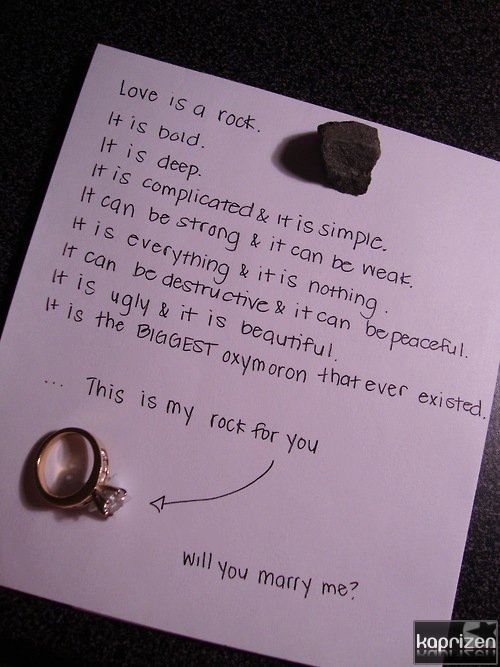 Love is a rock.
It is bold.
It is deep.
It is complicated & It is simple.
It can be strong & it can be weak.
It is everything & it is nothing.
It can be destructive & it can be peaceful.
It is ugly & it is beautiful.
It is the BIGGEST oxymoron that ever existed.
... This is my rock for you
will you marry me?
kaprizen